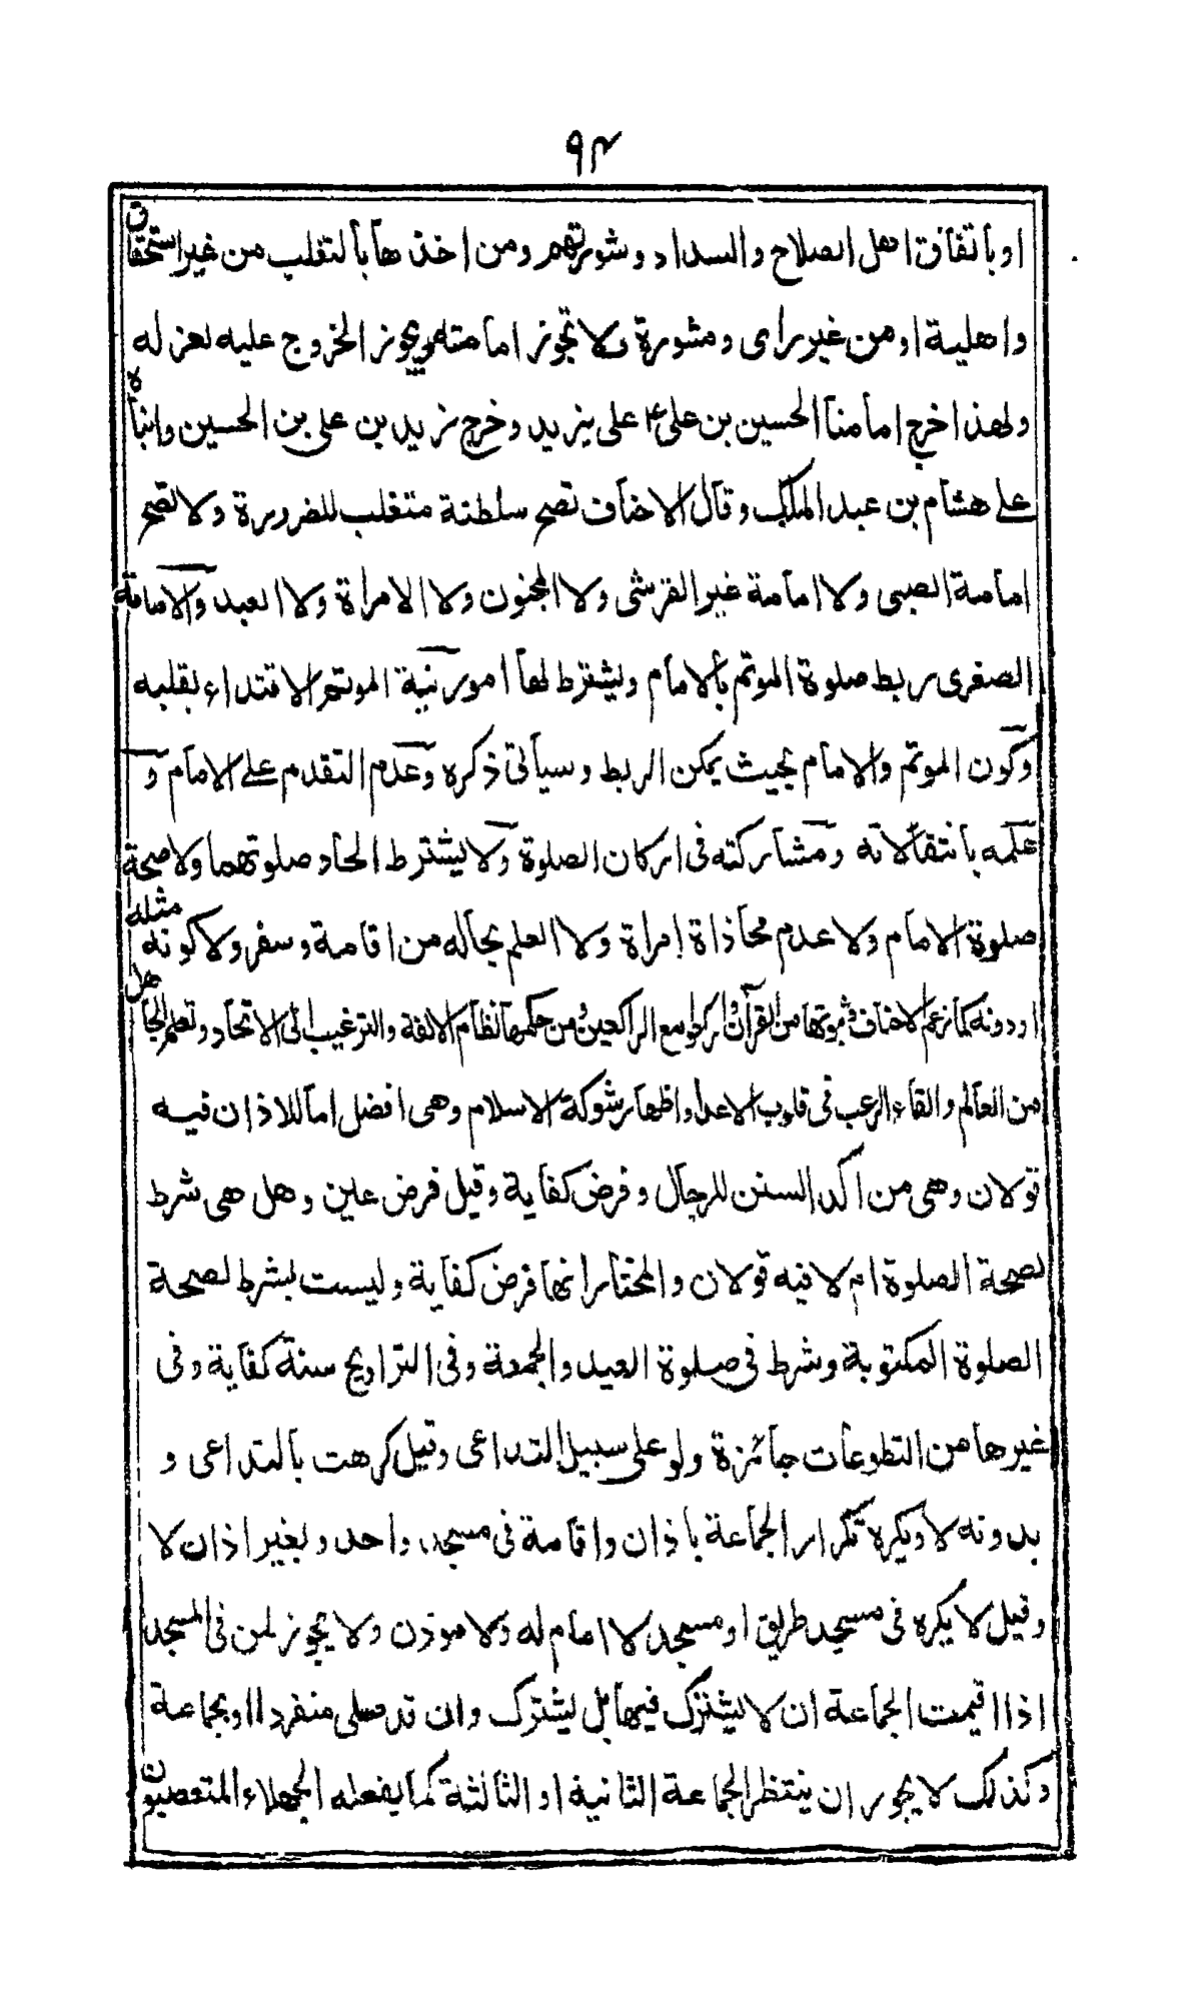 ٩٤
او باتفاق اهل الصلاح والسداد وشورتهم ومن اخذها بالتغلب من غير استحقاق
واهلية او من غير راى ومشورة فلا تجوز امامته ويجوز الخروج عليه لعزله
ولهذا خرج امامنا الحسين بن على ؑ على يزيد وخرج زيد بن على بن الحسين وابناه
على هشام بن عبد الملك وقال الاحناف تصح سلطنة متغلب للضرورة ولا تصح
امامة الصبى ولا امامة غير القرشى ولا المجنون ولا الامراة ولا العبد والامامة
الصغرى ربط صلوة الموتم بالامام ويشترط لها امور نية الموتم الاقتداء بقلبه
وكون الموتم والامام بحيث يمكن الربط وسياتى ذكره وعدم التقدم على الامام و
علمه بانتقالاته ومشاركته فى اركان الصلوة ولا يشترط اتحاد صلوتهما ولا صحة
صلوة الامام ولا عدم محاذاة امراة ولا العلم بحاله من اقامة وسفر ولا كونه مثله
او دونه كما زعم الاحناف وثبوتها من القرآن واركعوا مع الراكعين ومن حكمها نظام الالفة والترغيب الى الاتحاد وتعلم الجاهل
من العالم والقاء الرعب فى قلوب الاعداء واظهار شوكة الاسلام وهى افضل ام الاذان فيه
قولان وهى من آكد السنن للرجال وفرض كفاية وقيل فرض عين وهل هى شرط
لصحة الصلوة ام لا فيه قولان والمختار انها فرض كفاية وليست بشرط لصحة
الصلوة المكتوبة وشرط فى صلوة العيد والجمعة وفى التراويح سنة كفاية وفى
غيرها من التطوعات جائزة ولو على سبيل التداعى وقيل كرهت بالتداعى و
بدونه لا ويكره تكرار الجماعة باذان واقامة فى مسجد واحد وبغير اذان لا
وقيل لا يكره فى مسجد طريق او مسجد لا امام له ولا موذن ولا يجوز لمن فى المسجد
اذا اقيمت الجماعة ان لا يشترك فيها بل يشترك وان قد صلى منفردا او بجماعة
وكذلك لا يجوز ان ينتظر الجماعة الثانية او الثالثة كما يفعله الجهلاء المتعصبون